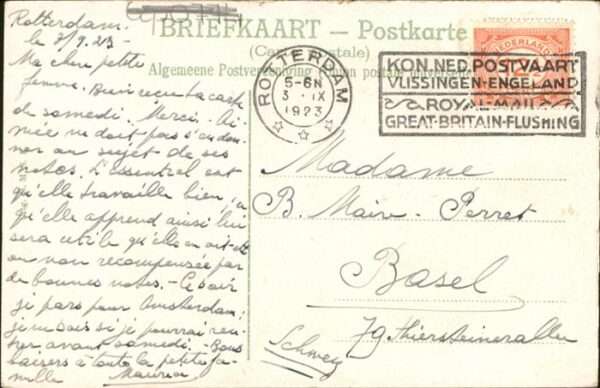 Rotterdam
le 3/9.23
Ma chère petite
femme. Bien reçu ta carte
de samedi. Merci. Ai-
mée ne doit pas s'en
au sujet de ses
notes. L'essentiel est
qu'elle travaille bien,
qu'elle apprend ainsi lui
sera utile qu'elle en ait été
ou non récompensée par
de bonnes notes. - Ce soir
je pars pour Amsterdam;
je ne sais si je pourrai ren-
trer avant samedi. - Bons
baisers à toute la petite fa-
mille Maurice
BRIEFKAART — Postkarte
(Carte postale)
Algemeene Postvereeniging Union postale universelle
ROTTERDAM
5-6N
3 IX
1923
NEDERLAND
KON. NED. POSTVAART
VLISSINGEN-ENGELAND
ROYAL-MAIL
GREAT-BRITAIN-FLUSHING
Madame
B. Maire-Perret
Basel
79 Thiersteinerallee
Schweiz